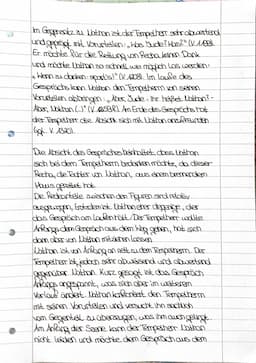 Im Gegensatz zu Nathan ist der Tempelherr sehr abweisend
und geprägt mit Vorurteilen: „Was Jude? Was?" (V.
Er möchte für die Rettung von Recha keinen Dank
und möchte Nathan so schnell wie möglich los werden
„Wenn zu danken (V. Im Laufe des
Gesprächs kann Nathan den Tempelherrn von seinen
Vorurteilen abbringen: „Aber, Jude - Ihr heißet Nathan? -
Aber, Nathan (...)" (V. Am Ende des Gesprächs hat
der Tempelherr die Absicht sich mit Nathan anzufreunden
(vgl. V.
Die Absicht des Gespräches beinhaltet, dass Nathan
sich bei dem Tempelherrn bedanken möchte, da dieser
Recha, die Tochter von Nathan, aus einem brennenden
Haus gerettet hat.
Die Redeanteile zwischen den Figuren sind relativ
ausgewogen, trotzdem ist Nathan eher derjenige, der
das Gespräch am Laufen hält. Der Tempelherr wollte
Anfangs dem Gespräch aus dem Weg gehen, hat sich
dann aber von Nathan mitreißen lassen.
Nathan ist von Anfang an nett zu dem Tempelherrn. Der
Tempelherr ist jedoch sehr abweisend und abwertend
gegenüber Nathan. Kurz gesagt ist das Gespräch
Anfangs angespannt, was sich aber im weiteren
Verlauf ändert. Nathan konfrontiert den Tempelherrn
mit seinen Vorurteilen und versucht ihn sachlich
vom Gegenteil zu überzeugen, was ihm auch gelingt.
Am Anfang der Szene kann der Tempelherr Nathan
nicht leiden und möchte dem Gespräch aus dem